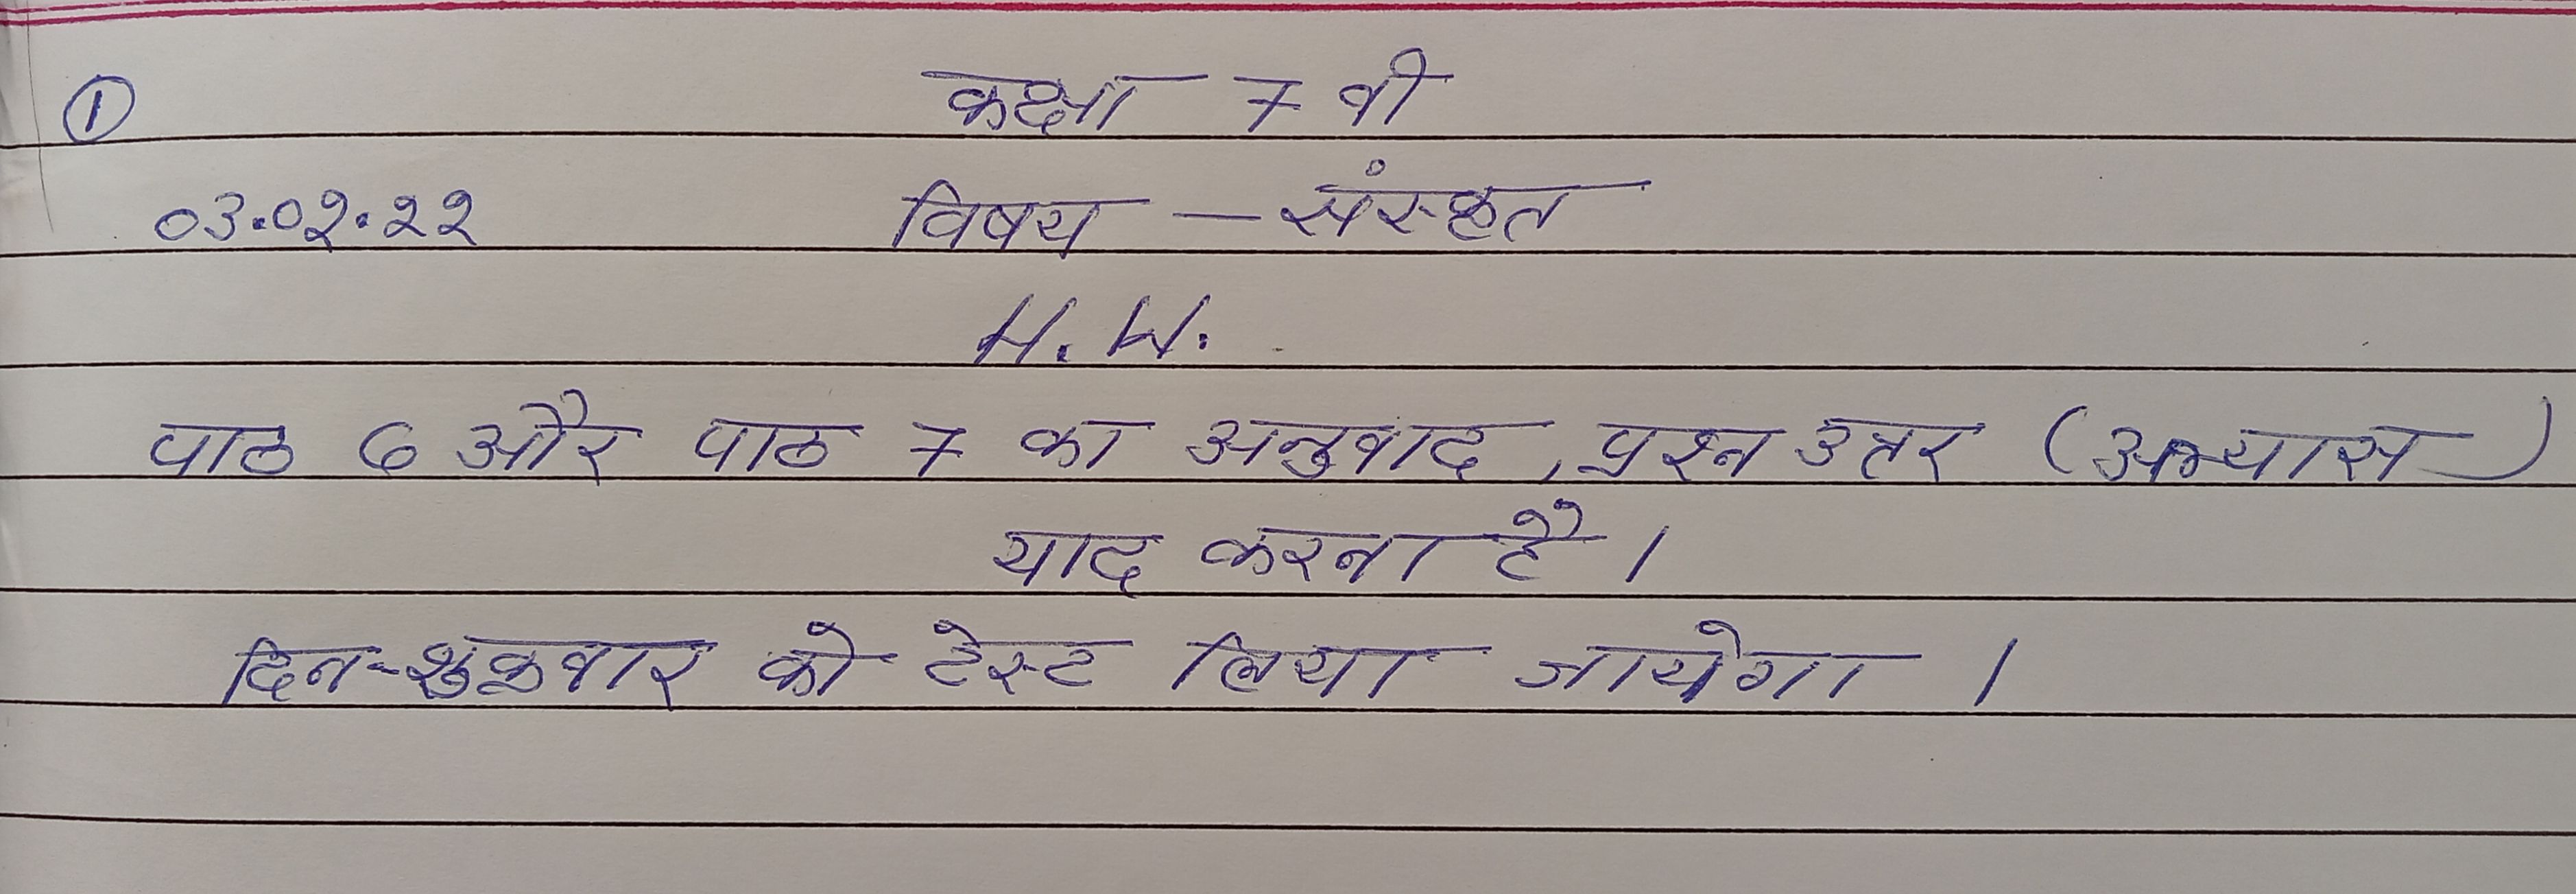 ① कक्षा 7 वी
03.02.22 विषय – संस्कृत
H.W.
पाठ 6 और पाठ 7 का अनुवाद, प्रश्न उत्तर (अभ्यास)
याद करना है।
दिन-शुक्रवार को टेस्ट लिया जायेगा।